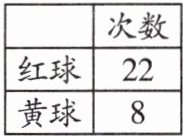 次数
红球 22
黄球 8